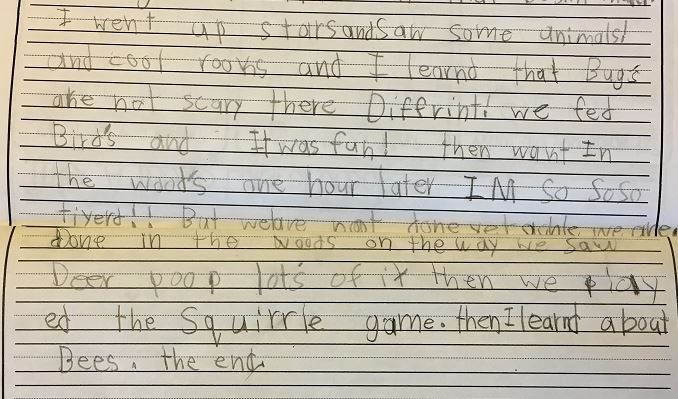 I went up stars and Saw some animals!
and cool rooms and I learnd that Bug's
are not scary there Diffrint! we fed
Bird's and It was fun! then want In
the wood's one hour later IM So SoSo
tiyerd!! But weare not done yet we are
Done in the woods on the way we saw
Deer poop lots of it then we play
ed the Squirrle game. then I learnd about
Bees. the end.